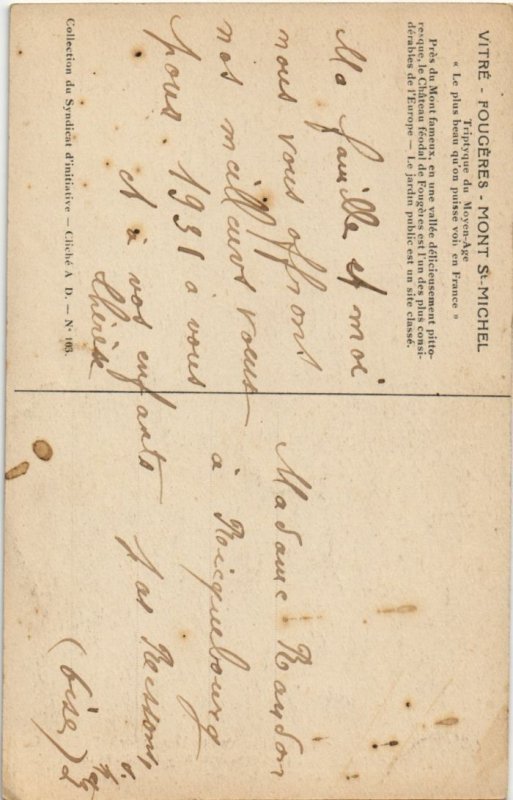 VITRÉ - FOUGÈRES - MONT St-MICHEL
Triptyque du Moyen-Age
« Le plus beau qu'on puisse voir en France »
Près du Mont fameux, en une vallée délicieusement pitto-
resque, le Château féodal de Fougères est l'un des plus consi-
dérables de l'Europe — Le jardin public est un site classé.
Ma famille et moi
nous vous offrons
nos meilleurs vœux
pour 1931 à vous
et à vos enfants
Thérèse
Collection du Syndicat d'initiative - Cliché A D. - N° 105.
Madame Raydon
à Ricquebourg
par Ressons
(Oise)